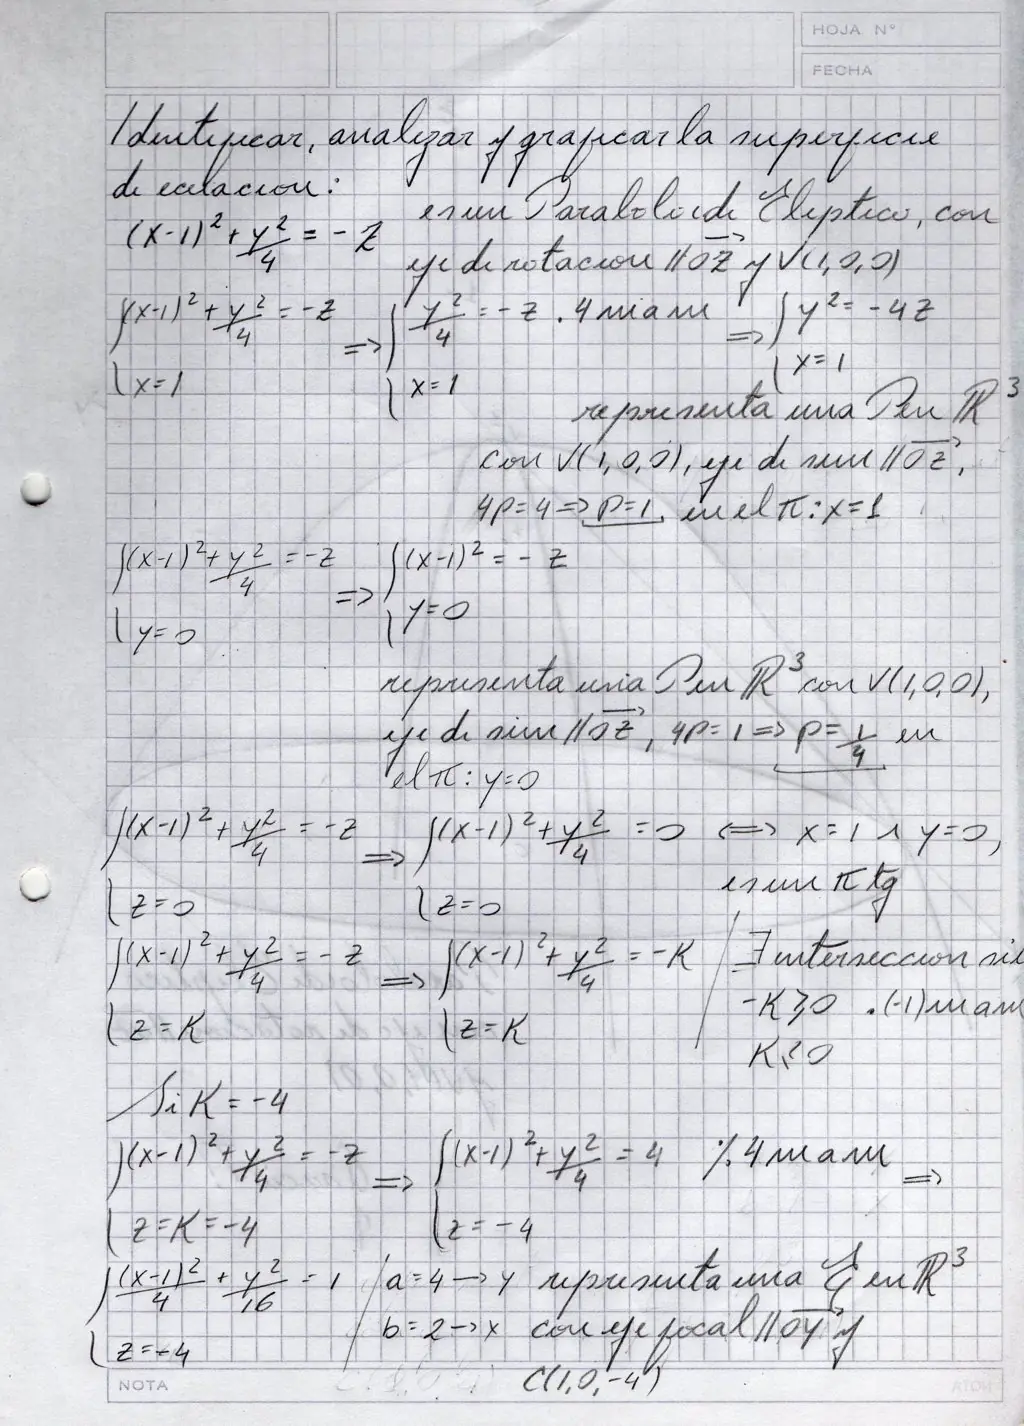 HOJA Nº
FECHA
Identificar, analizar y graficar la superficie
de ecuacion:
(x-1)² + y²/4 = -z
es un Paraboloide Elíptico, con
eje de rotacion // OZ y V(1,0,0)
{(x-1)² + y²/4 = -z => {y²/4 = -z . 4 m a m => {y² = -4z
{x=1 {x=1 {x=1
representa una P en ℝ³
con V(1,0,0), eje de sim // OZ,
4p=4 => p=1, en el π: x=1
{(x-1)² + y²/4 = -z => {(x-1)² = -z
{y=0 {y=0
representa una P en ℝ³ con V(1,0,0),
eje de sim // OZ, 4p=1 => p=1/4 en
el π: y=0
{(x-1)² + y²/4 = -z => {(x-1)² + y²/4 = 0 <=> x=1 ∧ y=0,
{z=0 {z=0 es un π tg
{(x-1)² + y²/4 = -z => {(x-1)² + y²/4 = -K / ∃ interseccion sii
{z=K {z=K -K⩾0 .(-1) m a m
K⩽0
Si K=-4
{(x-1)² + y²/4 = -z => {(x-1)² + y²/4 = 4 %4 m a m =>
{z=K=-4 {z=-4
{(x-1)²/4 + y²/16 = 1 / a=4 → y representa una ξ en ℝ³
{z=-4 b=2 → x con eje focal // OY y
C(1,0,-4)
NOTA